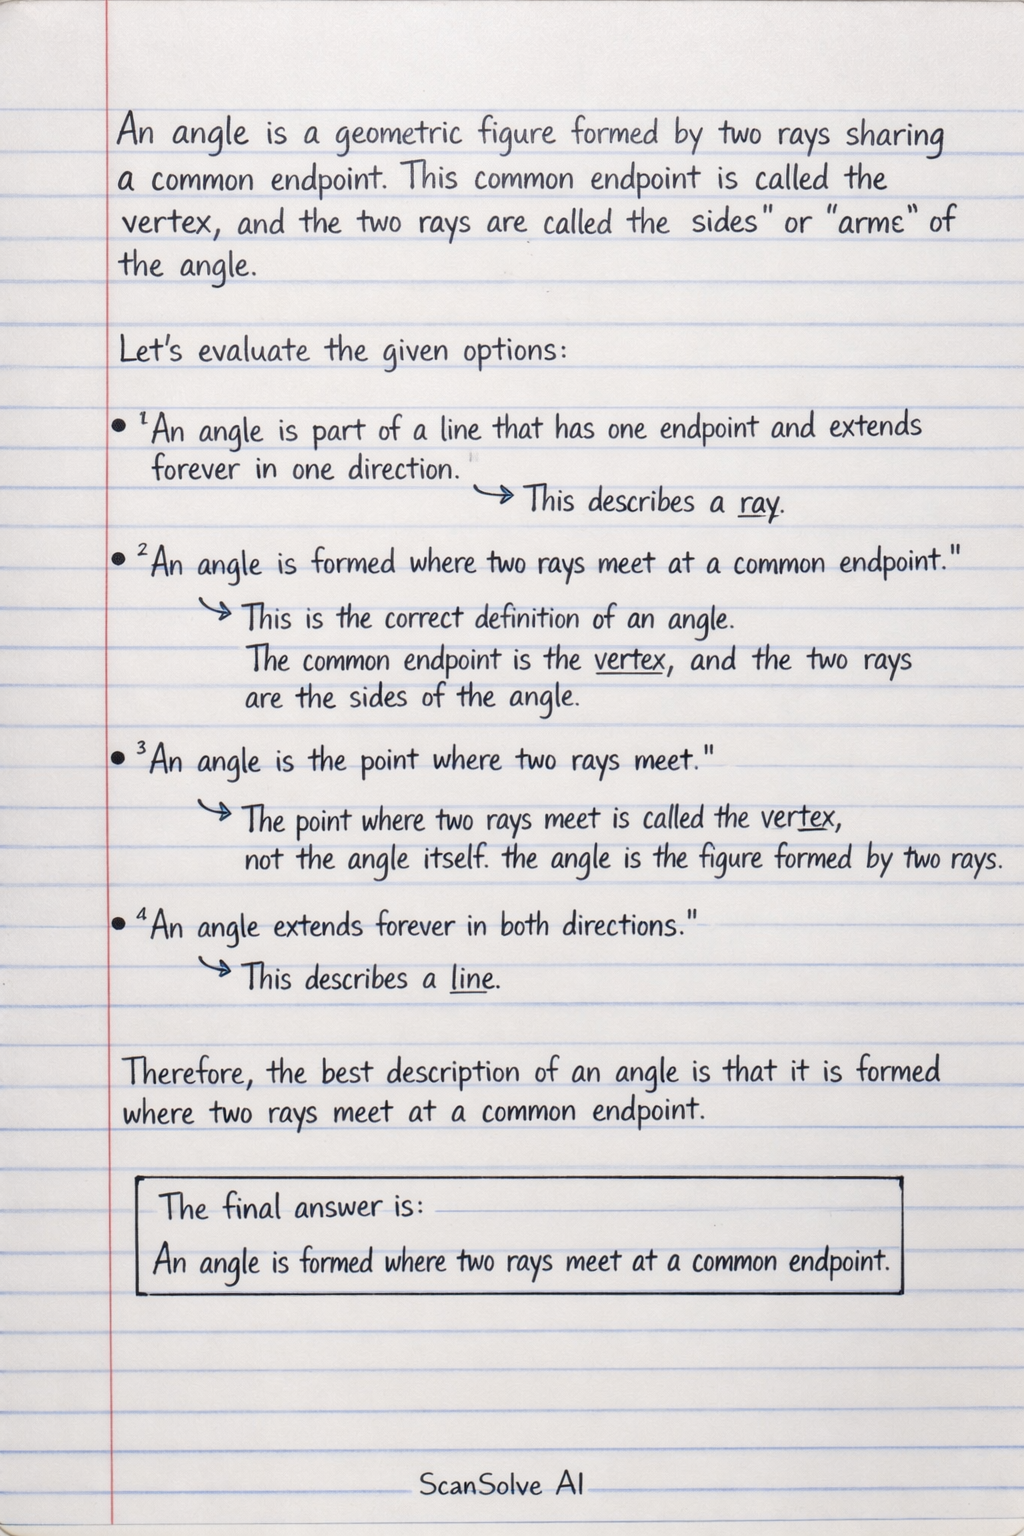 An angle is a geometric figure formed by two rays sharing
a common endpoint. This common endpoint is called the
vertex, and the two rays are called the sides" or "arms" of
the angle.
Let's evaluate the given options:
• ¹An angle is part of a line that has one endpoint and extends
forever in one direction. "
↪ This describes a ray.
• ²An angle is formed where two rays meet at a common endpoint."
↪ This is the correct definition of an angle.
The common endpoint is the vertex, and the two rays
are the sides of the angle.
• ³An angle is the point where two rays meet."
↪ The point where two rays meet is called the vertex,
not the angle itself. the angle is the figure formed by two rays.
• ⁴An angle extends forever in both directions."
↪ This describes a line.
Therefore, the best description of an angle is that it is formed
where two rays meet at a common endpoint.
The final answer is:
An angle is formed where two rays meet at a common endpoint.
ScanSolve AI